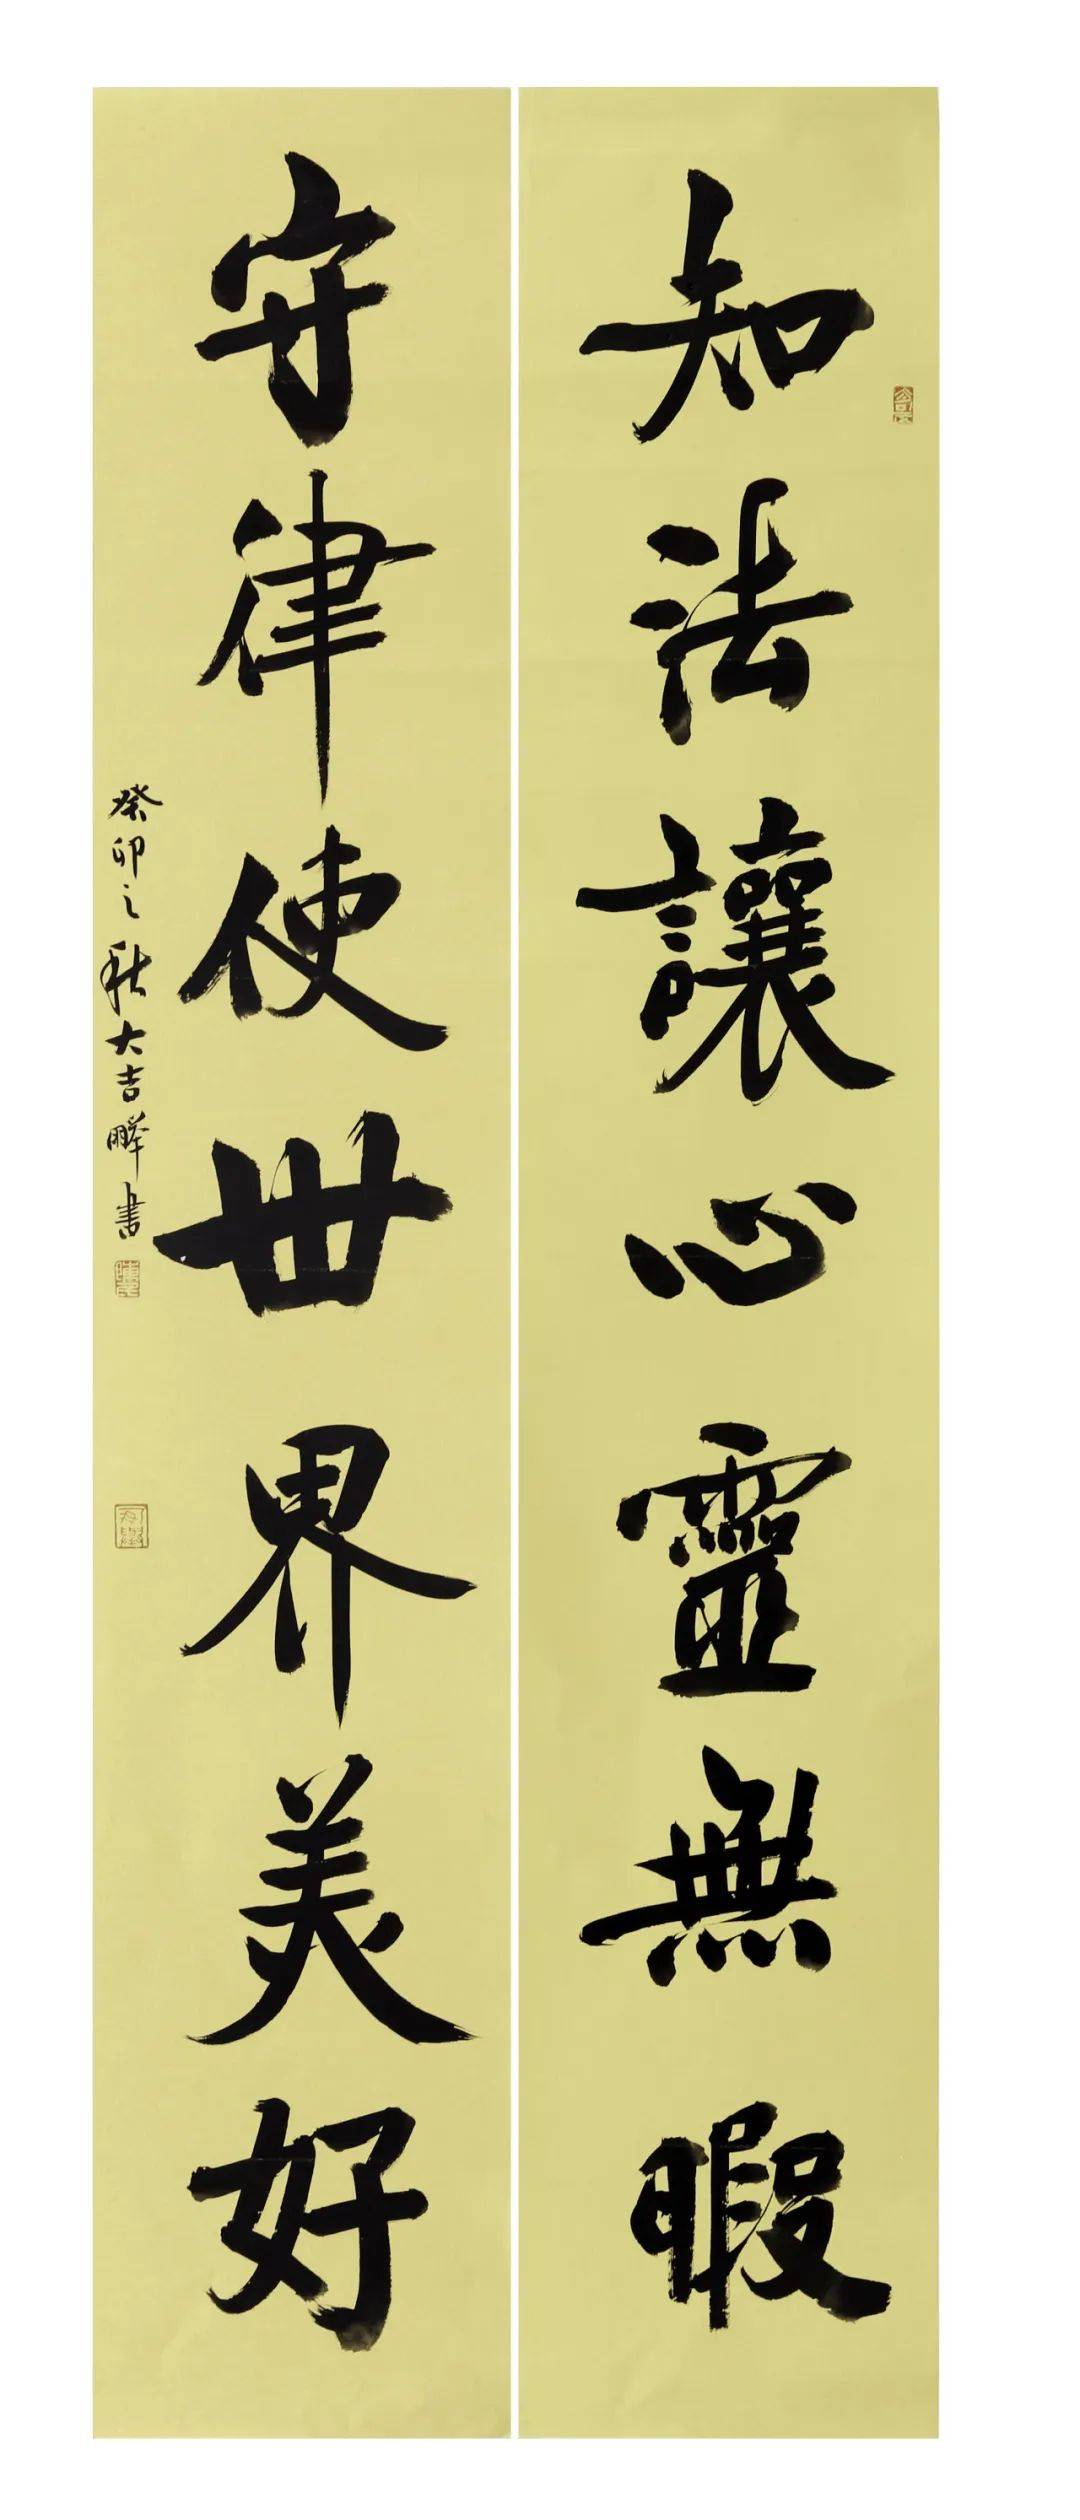 知法讓心靈無暇
守律使世界美好
癸卯之秋大吉 書